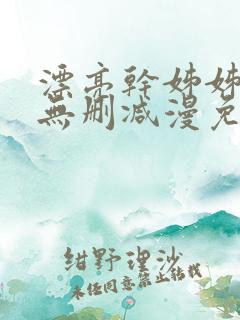 漂亮幹姊姊
無刪減漫免
紺野理沙
未经同意禁止转载